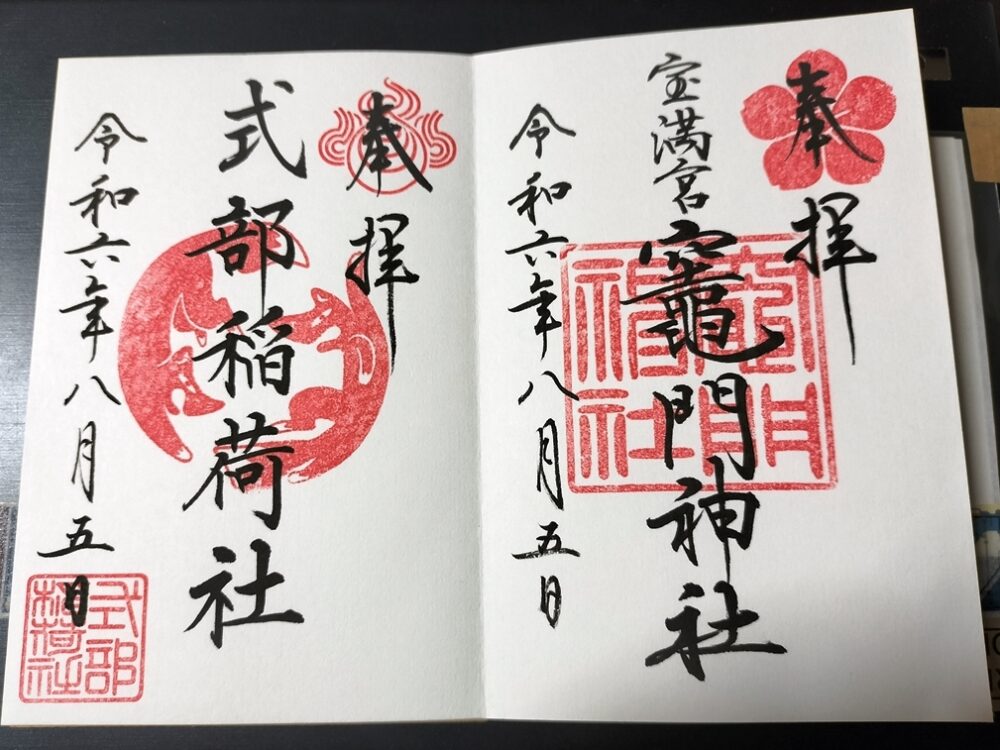 奉拝
宝満宮竈門神社
令和六年八月五日
竈門
神社
奉拝
式部稲荷社
令和六年八月五日
式部
稲荷社